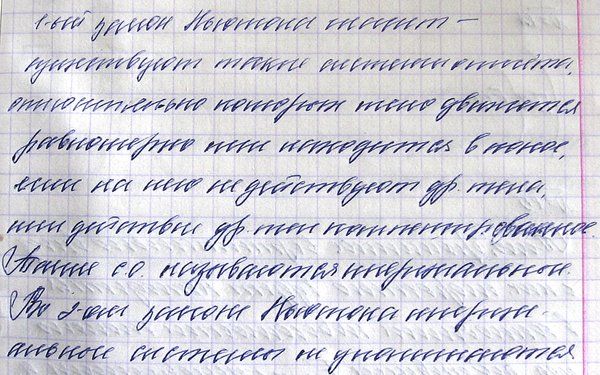 1-ый закон Ньютона гласит –
существуют такие системы отсчёта,
относительно которых тело движется
равномерно или находится в покое,
если на него не действуют др. тела,
или действие др. тел компенсированное.
Такие с.о. называются инерциальные
Во 2-ом законе Ньютона инерци-
альные системы не упоминаются